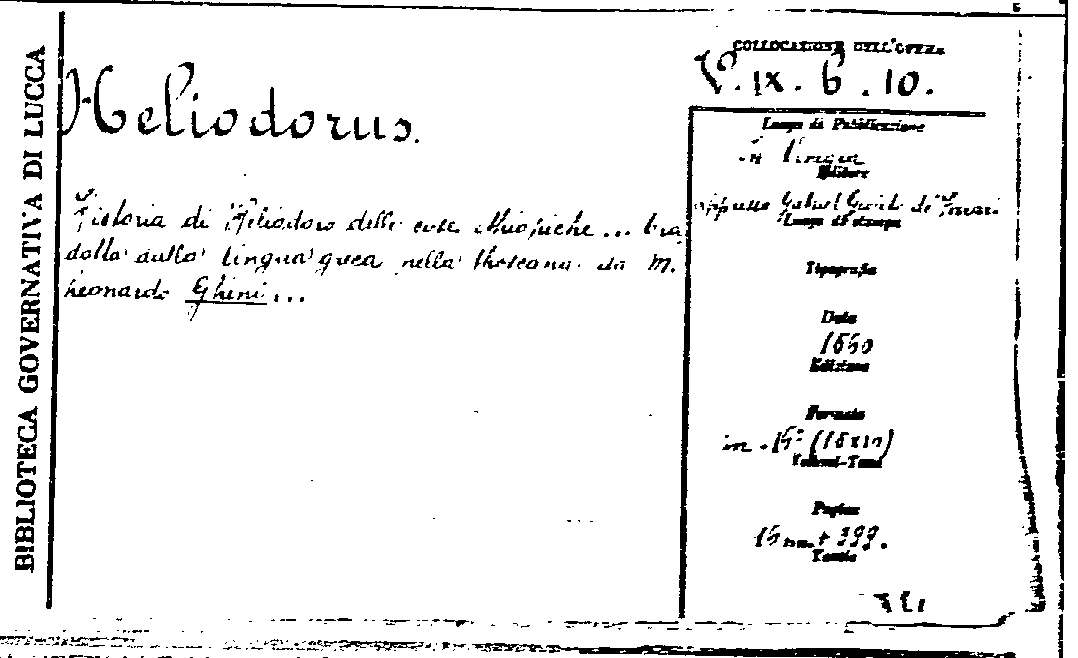 BIBLIOTECA GOVERNATIVA DI LUCCA
Heliodorus.
Historia di Heliodoro delle cose Ethiopiche ... tra
dotta dalla lingua greca nella thoscana da M.
Leonardo Ghini ...
COLLOCAZIONE DELL'OPERA
IX. 6. 10.
Luogo di Pubblicazione
in Vinegia
Editore
appresso Gabriel Giolito de' Ferrari
Luogo di stampa
Tipografia
Data
1560
Edizione
Formato
in
Volumi-Tomi
Pagine
+ 399.
Tavole